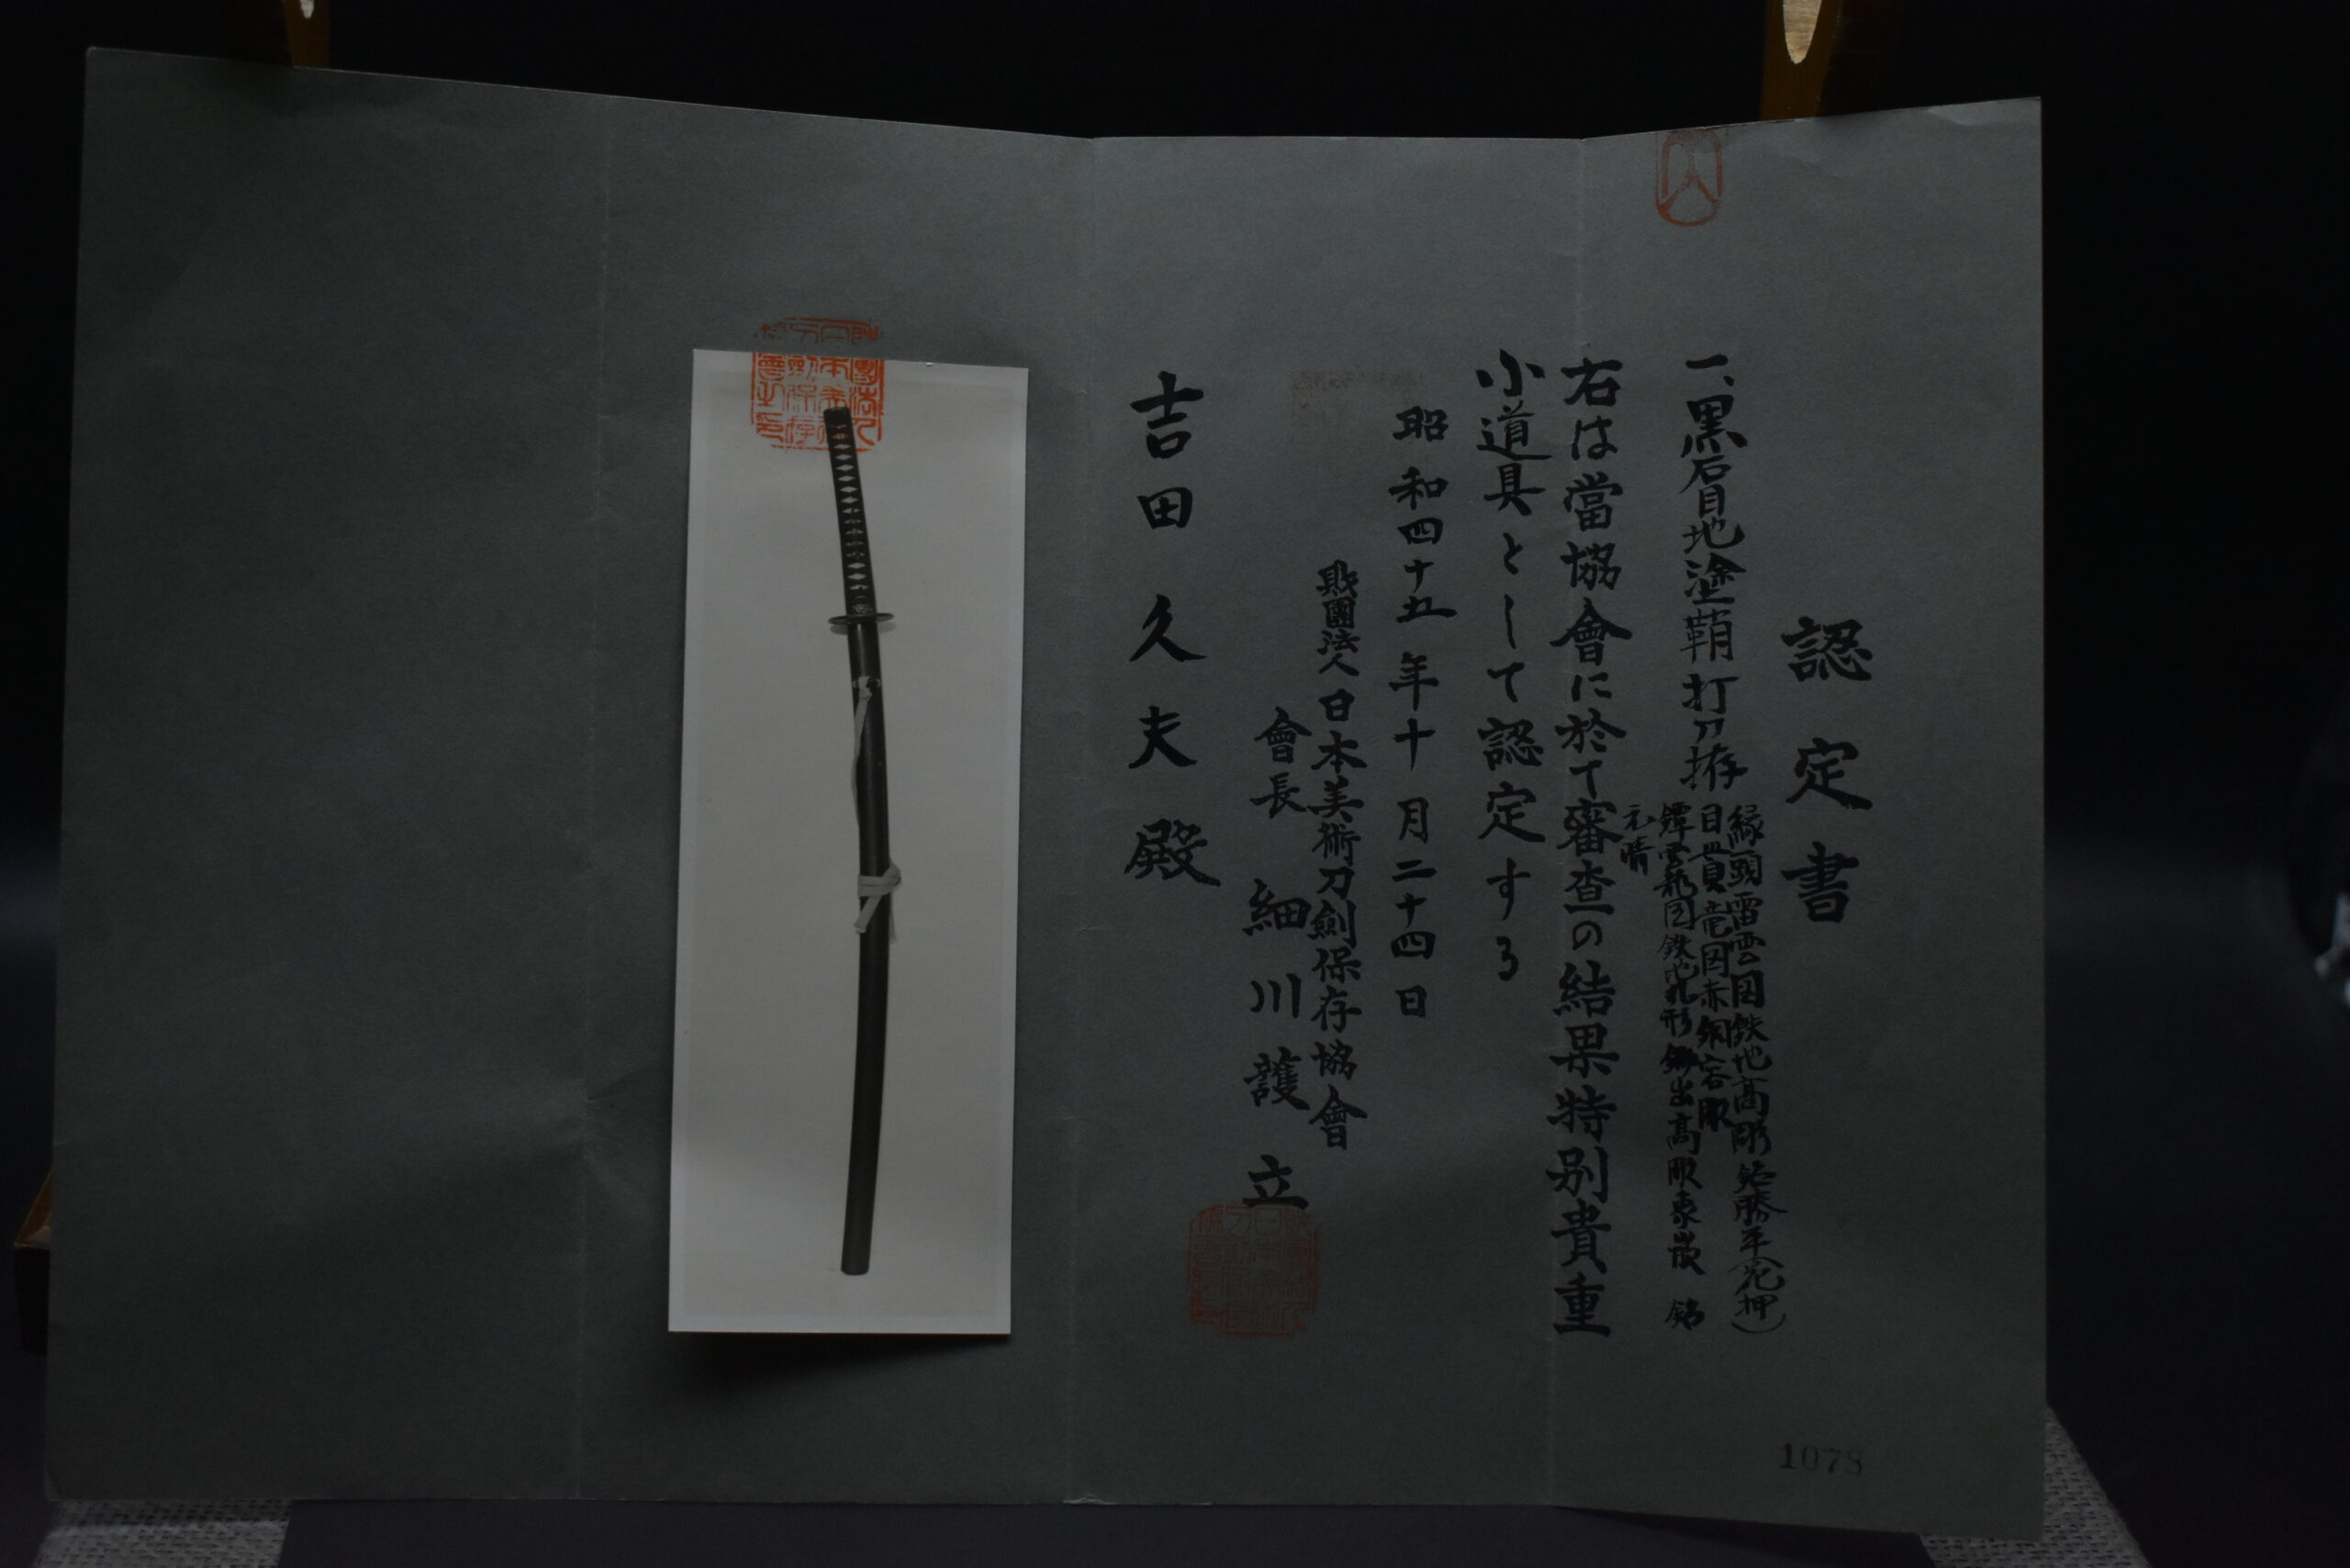 認定書
一、黒石目地塗鞘打刀拵
縁頭雷雲図鉄地高彫銘勝平(花押)
目貫竜図赤銅容彫
鐔雲龍図鉄地丸形鋤出高彫象嵌 銘
元晴
右は當協會に於て審査の結果特別貴重
小道具として認定する
昭和四十五年十月二十四日
財團法人日本美術刀劍保存協會
會長 細川護立
吉田久夫殿
1078